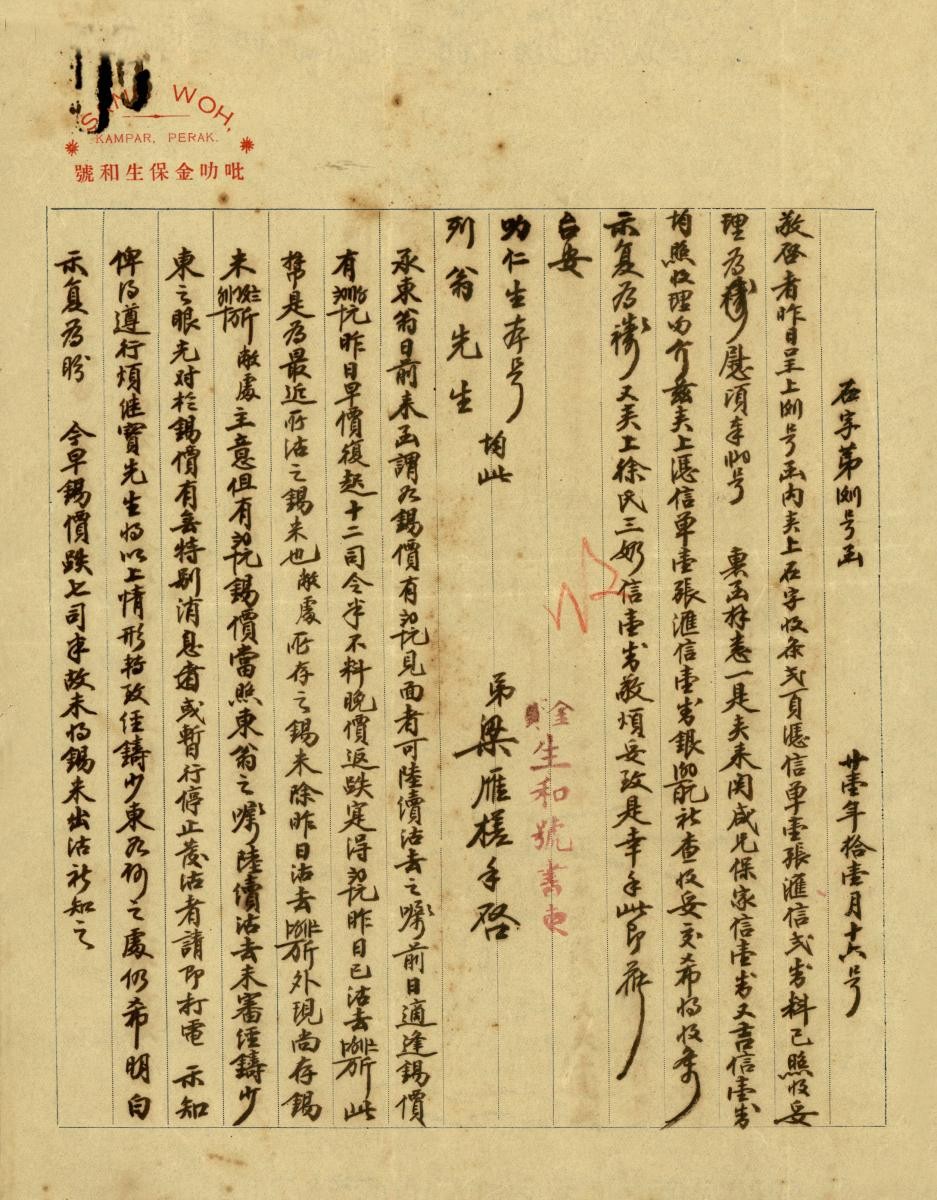 SANG WOH,
KAMPAR, PERAK.
號和生保金叻吡
石字第 号函 廿壹年拾壹月十六号
敬啓者昨日呈上 号函内夾上石字收条弍頁憑信單壹張滙信弍封料已照收妥
理為 慰頃奉 号 東函祥悉一是夾来関咸兄保家信壹封又吉信壹封
均照收理内介兹夾上憑信單壹張滙信壹封銀 祈查收妥交希將收条
示复為禱又夾上徐氏三奶信壹封敬煩妥致是幸手此即頌
台安
叻仁生本号
列翁先生 均此 弟梁雁槎手啓
金 生和號書柬
承東翁日前来函謂及錫價有 見面者可陸續沽去之囑前日適逢錫價
有 昨日早價復起十二司令半不料晚價返跌寔得 昨日已沽去 斤此
幣是為最近所沽之錫米也敝處所存之錫米除昨日沽去 斤外現尚存錫
米 斤敝處主意但有 錫價當照東翁之囑陸續沽去未審経鑄少
東之眼光对於錫價有無特别消息着或暫行停止發沽者請即打電 示知
俾得遵行煩继寶先生將以上情形轉致経鑄少東及 之處仍希明白
示复為盼 今早錫價跌七司半故未將錫米出沽祈知之